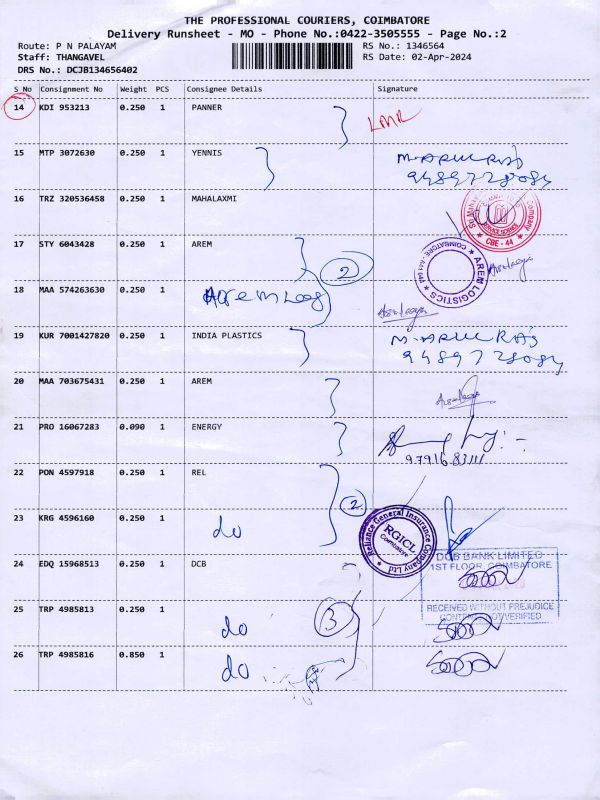 THE PROFESSIONAL COURIERS, COIMBATORE
Delivery Runsheet - MO - Phone No.:0422-3505555 - Page No.:2
Route: P N PALAYAM
RS No.: 1346564
Staff: THANGAVEL
RS Date: 02-Apr-2024
DRS No.: DCJB134656402
S No Consignment No Weight PCS Consignee Details Signature
14 KDI 953213 0.250 1 PANNER
15 MTP 3072630 0.250 1 YENNIS
M. ARUL RAJ
9489728084
16 TRZ 320536458 0.250 1 MAHALAXMI
CBE - 44
17 STY 6043428 0.250 1 AREM
2
AREM LOGISTICS
18 MAA 574263630 0.250 1 Arem Log
19 KUR 7001427820 0.250 1 INDIA PLASTICS
M. ARUL RAJ
9489728084
20 MAA 703675431 0.250 1 AREM
21 PRO 16067283 0.090 1 ENERGY
22 PON 4597918 0.250 1 REL
2
23 KRG 4596160 0.250 1 do
Reliance General Insurance Company Ltd
RGICL
Coimbatore
24 EDQ 15968513 0.250 1 DCB
DCB BANK LIMITED
1ST FLOOR, COIMBATORE
25 TRP 4985813 0.250 1 do
3
RECEIVED WITHOUT PREJUDICE
26 TRP 4985816 0.850 1 do